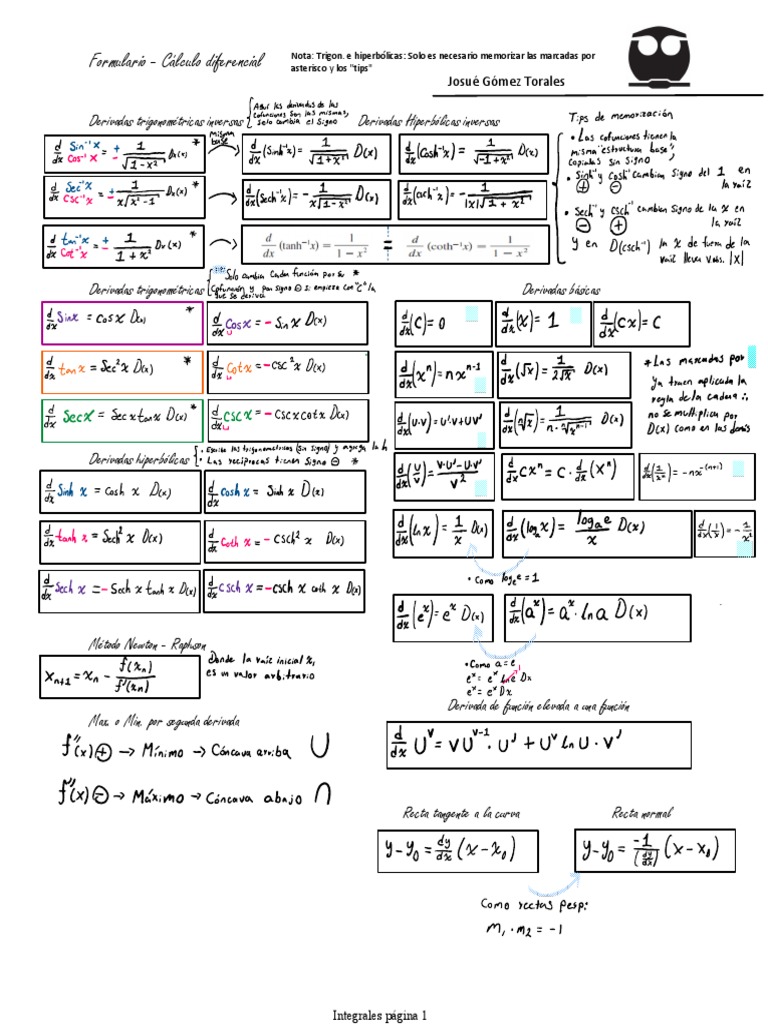 Formulario - Cálculo diferencial
Nota: Trigon. e hiperbólicas: Solo es necesario memorizar las marcadas por
asterisco y los "tips"
Josué Gómez Torales
Derivadas trigonométricas inversas
Aquí las derivadas de las
cofunciones son las mismas,
solo cambia el signo
d/dx Sin⁻¹x Cos⁻¹x = + - 1/√(1-x²) Dx(x) *
d/dx Sec⁻¹x CSC⁻¹x = + - 1/(x√(x²-1)) Dx(x) *
d/dx tan⁻¹x Cot⁻¹x = + - 1/(1+x²) Dx(x) *
misma
base
Derivadas Hiperbólicas inversas
d/dx (Sinh⁻¹x) = 1/√(1+x²) D(x)
d/dx (Cosh⁻¹x) = 1/√(-1+x²) D(x)
d/dx (Sech⁻¹x) = - 1/(x√(1-x²)) D(x)
d/dx (csch⁻¹x) = - 1/(|x|√(1+x²))
d/dx (tanh⁻¹x) = 1/(1-x²) = d/dx (coth⁻¹x) = 1/(1-x²)
Tips de memorización
• Las cofunciones tienen la
misma "estructura base",
copialas sin signo
• Sinh⁻¹ y Cosh⁻¹ cambian signo del 1 en
+ - la raíz
• Sech⁻¹ y csch⁻¹ cambian signo de la x en
- + la raíz
y en D(csch⁻¹) la x de fuera de la
raíz lleva vabs. |x|
Derivadas trigonométricas
Solo cambia cada función por su *
cofunción y pon signo ⊖ si empieza con "C" la
que se deriva
d/dx Sinx = cosx D(x) *
d/dx Cosx = - Sinx D(x)
d/dx tanx = Sec²x D(x) *
d/dx Cotx = -CSC²x D(x)
d/dx Secx = Secxtanx D(x) *
d/dx CSCx = -CSCxcotx D(x)
Derivadas hiperbólicas
• Escribe las trigonométricas (Sin signo) y agrega la h
• Las recíprocas tienen Signo ⊖ *
d/dx Sinh x = cosh x D(x)
d/dx cosh x = Sinh x D(x)
d/dx tanh x = Sech² x D(x)
d/dx Coth x = -CSCh² x D(x)
d/dx Sech x = -Sech x tanh x D(x)
d/dx CSCh x = -CSCh x coth x D(x)
Derivadas básicas
d/dx (C) = 0
d/dx (x) = 1
d/dx (Cx) = C
d/dx (xⁿ) = nxⁿ⁻¹
d/dx (√x) = 1/(2√x) D(x)
d/dx (u·v) = u'v+uv'
d/dx (ⁿ√x) = 1/(n·ⁿ√xⁿ⁻¹) D(x)
d/dx (u/v) = (v·u'-u·v')/v²
d/dx Cxⁿ = C · d/dx (xⁿ)
d/dx (1/xⁿ) = -nx⁻⁽ⁿ⁺¹⁾
d/dx (lnx) = 1/x D(x)
d/dx (logₐx) = logₐe/x D(x)
d/dx (1/x) = -1/x²
* Las marcadas por
ya traen aplicada la
regla de la cadena ∴
no se multiplica por
D(x) como en las demás
• Como logₑe = 1
d/dx (eˣ) = eˣ D(x)
d/dx (aˣ) = aˣ·lna D(x)
• Como a = e
eˣ = eˣ lne Dx
1
eˣ = eˣ Dx
Método Newton - Raphson
xₙ₊₁ = xₙ - f(xₙ)/f'(xₙ)
donde la raíz inicial x,
es un valor arbitrario
Max. o Min. por segunda derivada
f''(x) ⊕ → Mínimo → Cóncava arriba ∪
f''(x) ⊖ → Máximo → Cóncava abajo ∩
Derivada de función elevada a una función
d/dx Uᵛ = vUᵛ⁻¹ · U' + Uᵛ lnU · v'
Recta tangente a la curva
y-y₀ = dy/dx (x-x₀)
Recta normal
y-y₀ = -1/(dy/dx) (x-x₀)
Como rectas perp:
m₁·m₂ = -1
Integrales página 1